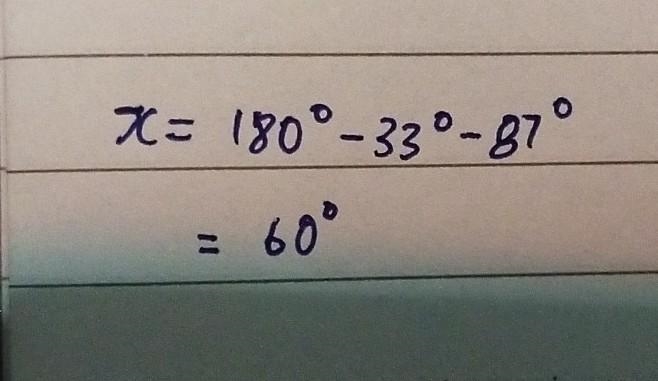 x = 180° - 33° - 87°
= 60°